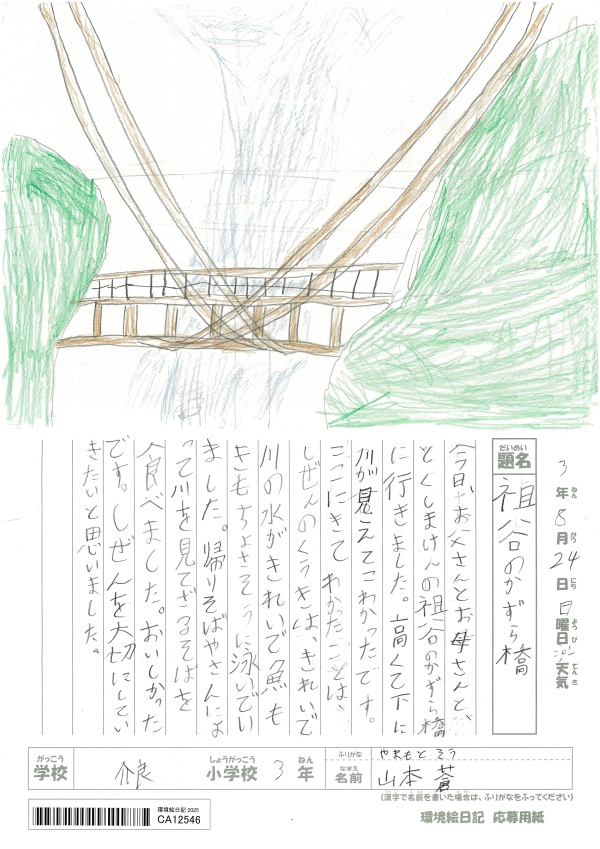 3年8月24日日曜日天気
だいめい
題名
祖谷のかずら橋
今日、お父さんとお母さんと、
とくしまけんの祖谷のかずら橋
に行きました。高くて下に
川が見えてこわかったです。
ここにきてわかったことは、
しぜんのくうきは、きれいで
川の水がきれいで魚も
きもちよさそうに泳いでい
ました。帰りそばやさんによ
って川を見てざるそばを
食べました。おいしかった
です。しぜんを大切にしてい
きたいと思いました。
がっこう しょうがっこう ねん
学校 小学校 3 年
ふりがな やまもと そう
なまえ
名前 山本 蒼
(漢字で名前を書いた場合は、ふりがなをふってください)
環境絵日記 2025
CA12546
環境絵日記 応募用紙